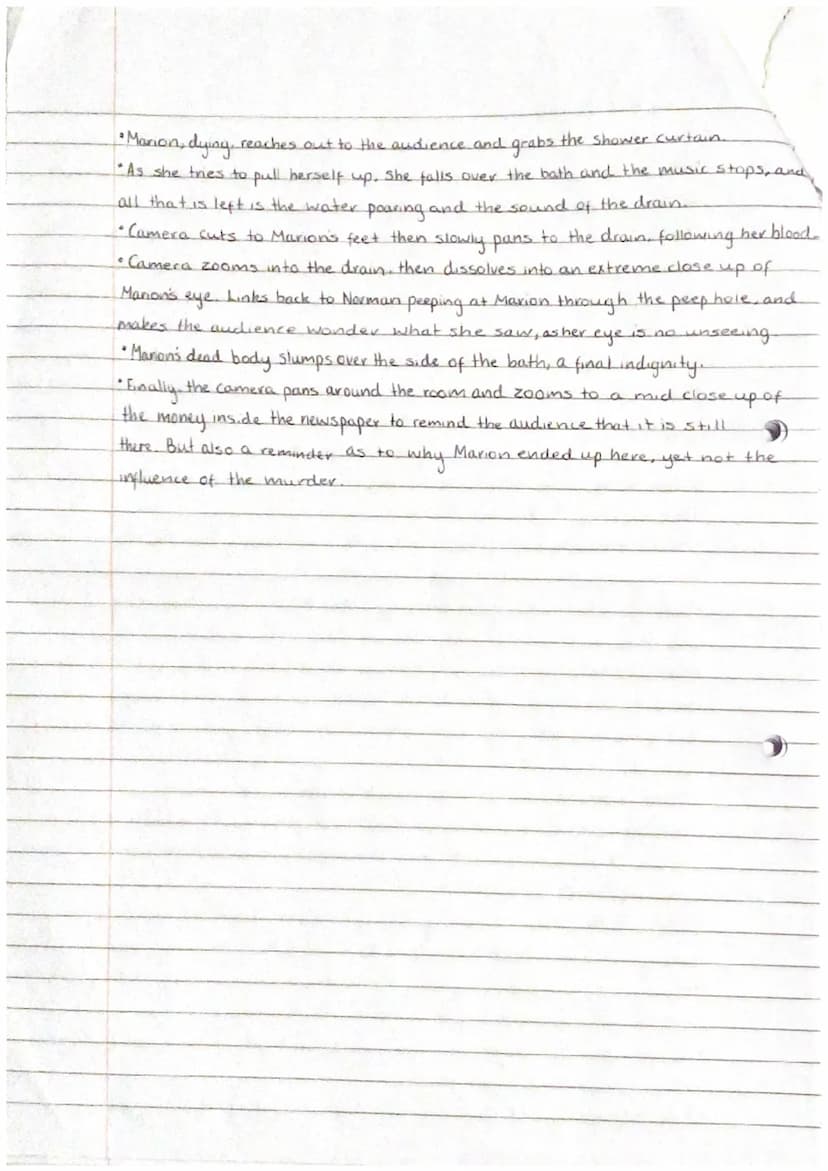 • Marion, dying, reaches out to the audience and grabs the shower curtain.
• As she tries to pull herself up, She falls over the bath and the music stops, and
all that is left is the water pouring and the sound of the drain.
• Camera cuts to Marion's feet then slowly pans to the drain, following her blood.
• Camera zooms into the drain, then dissolves into an extreme close up of
Marion's eye. Links back to Norman peeping at Marion through the peep hole, and
makes the audience wonder what she saw, as her eye is no unseeing.
• Marion's dead body slumps over the side of the bath, a final indignity.
• Finally, the camera pans around the room and zooms to a mid close up of
the money inside the newspaper to remind the audience that it is still
there. But also a reminder as to why Marion ended up here, yet not the
influence of the murder.